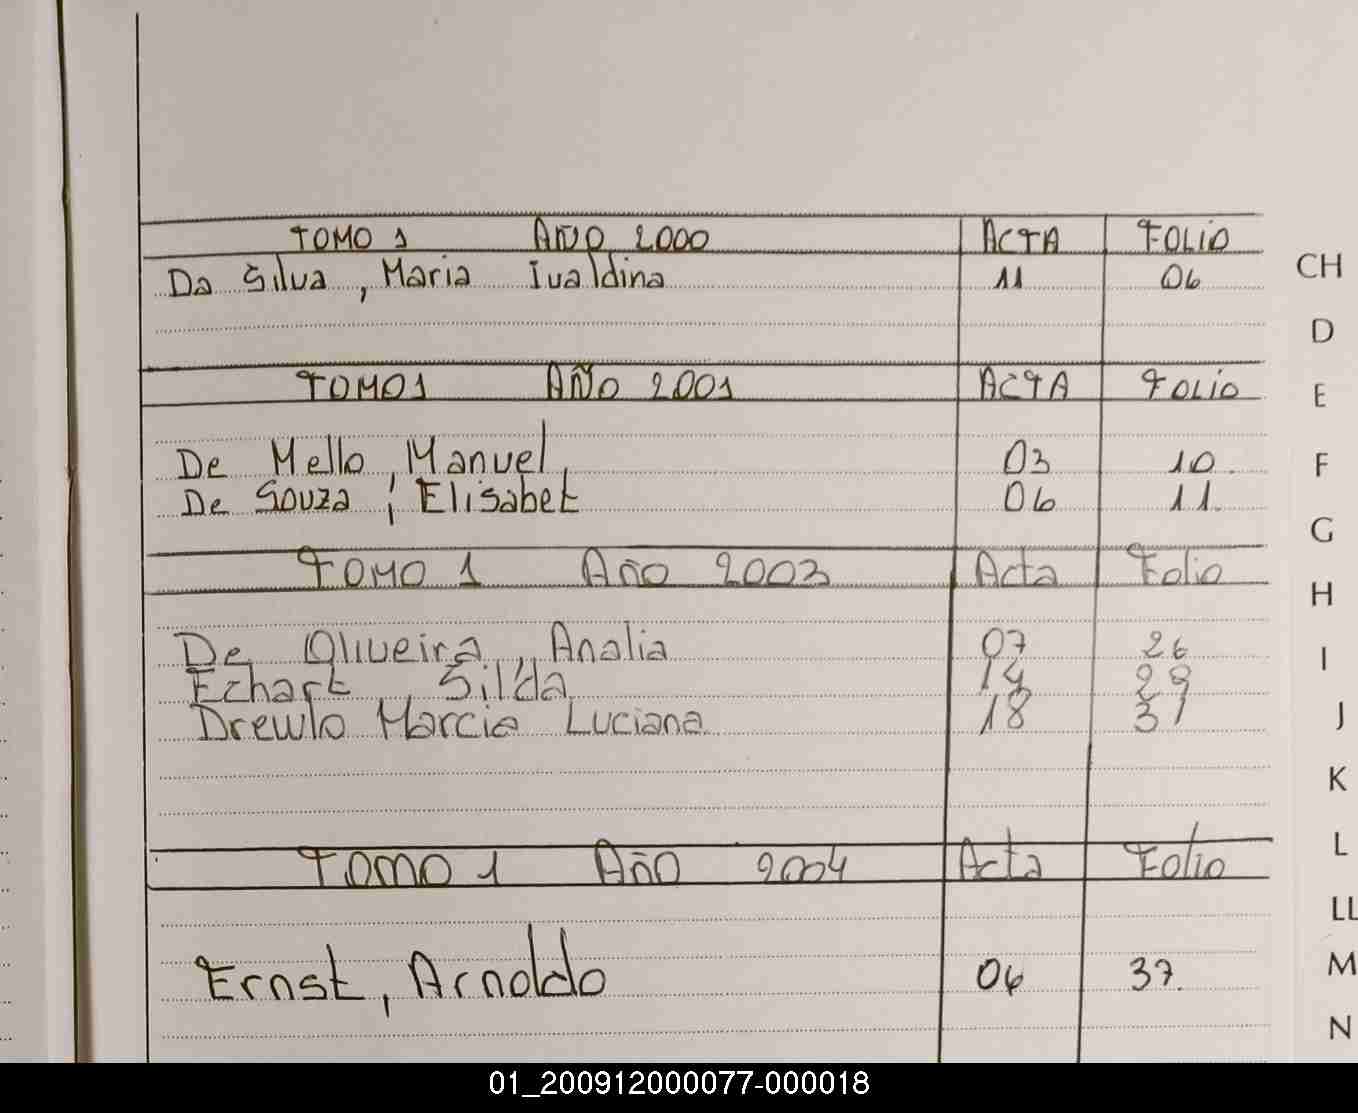 TOMO 1 AÑO 2000 ACTA FOLIO
Da Silva, Maria Ivaldina 11 06
TOMO 1 AÑO 2001 ACTA FOLIO
De Mello, Manuel, 03 10.
De Souza, Elisabet 06 11.
TOMO 1 Año 2003 Acta Folio
De Oliveira, Analia 07 26
Echart, Silda 14 29
Drewlo Marcia Luciana. 18 31
TOMO 1 Año 2004 Acta Folio
Ernst, Arnoldo 37.
CH
D
E
F
G
H
I
J
K
L
LL
M
N
01_200912000077-000018